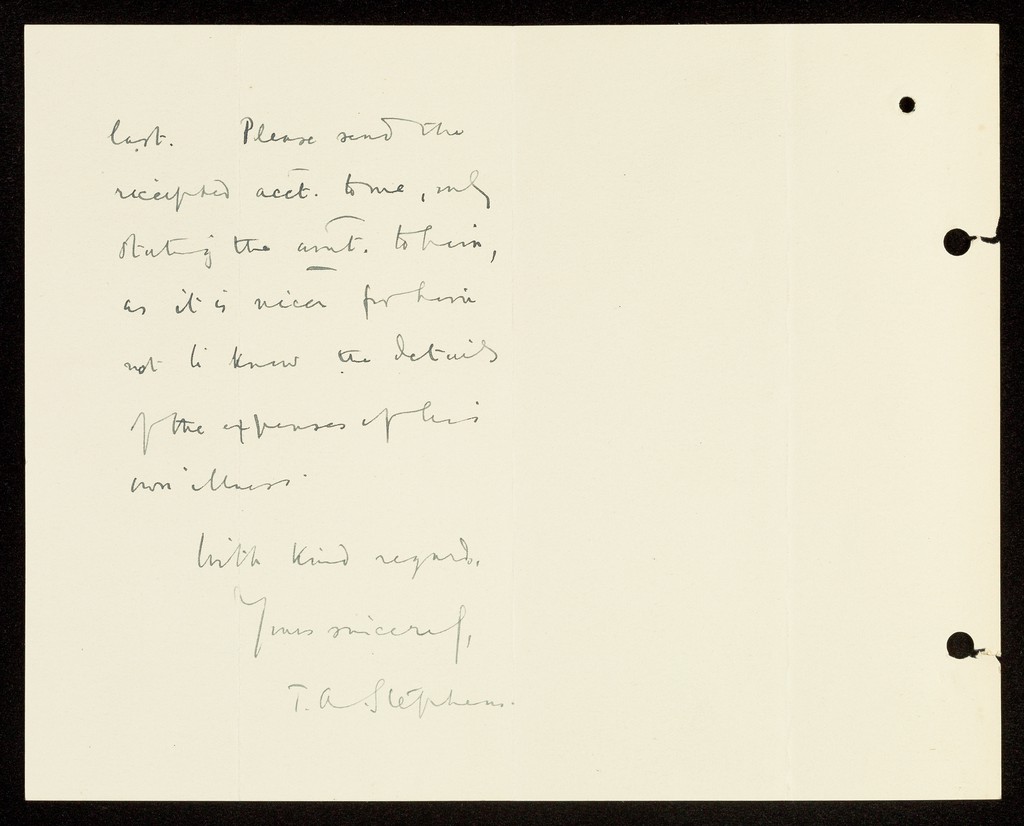 last. Please send the
receipted acct. to me, only
stating the amt. to him,
as it is nicer for him
not to know the details
of the expenses of his
own illness.
With kind regards.
Yours sincerely,
T. A. Stephens.